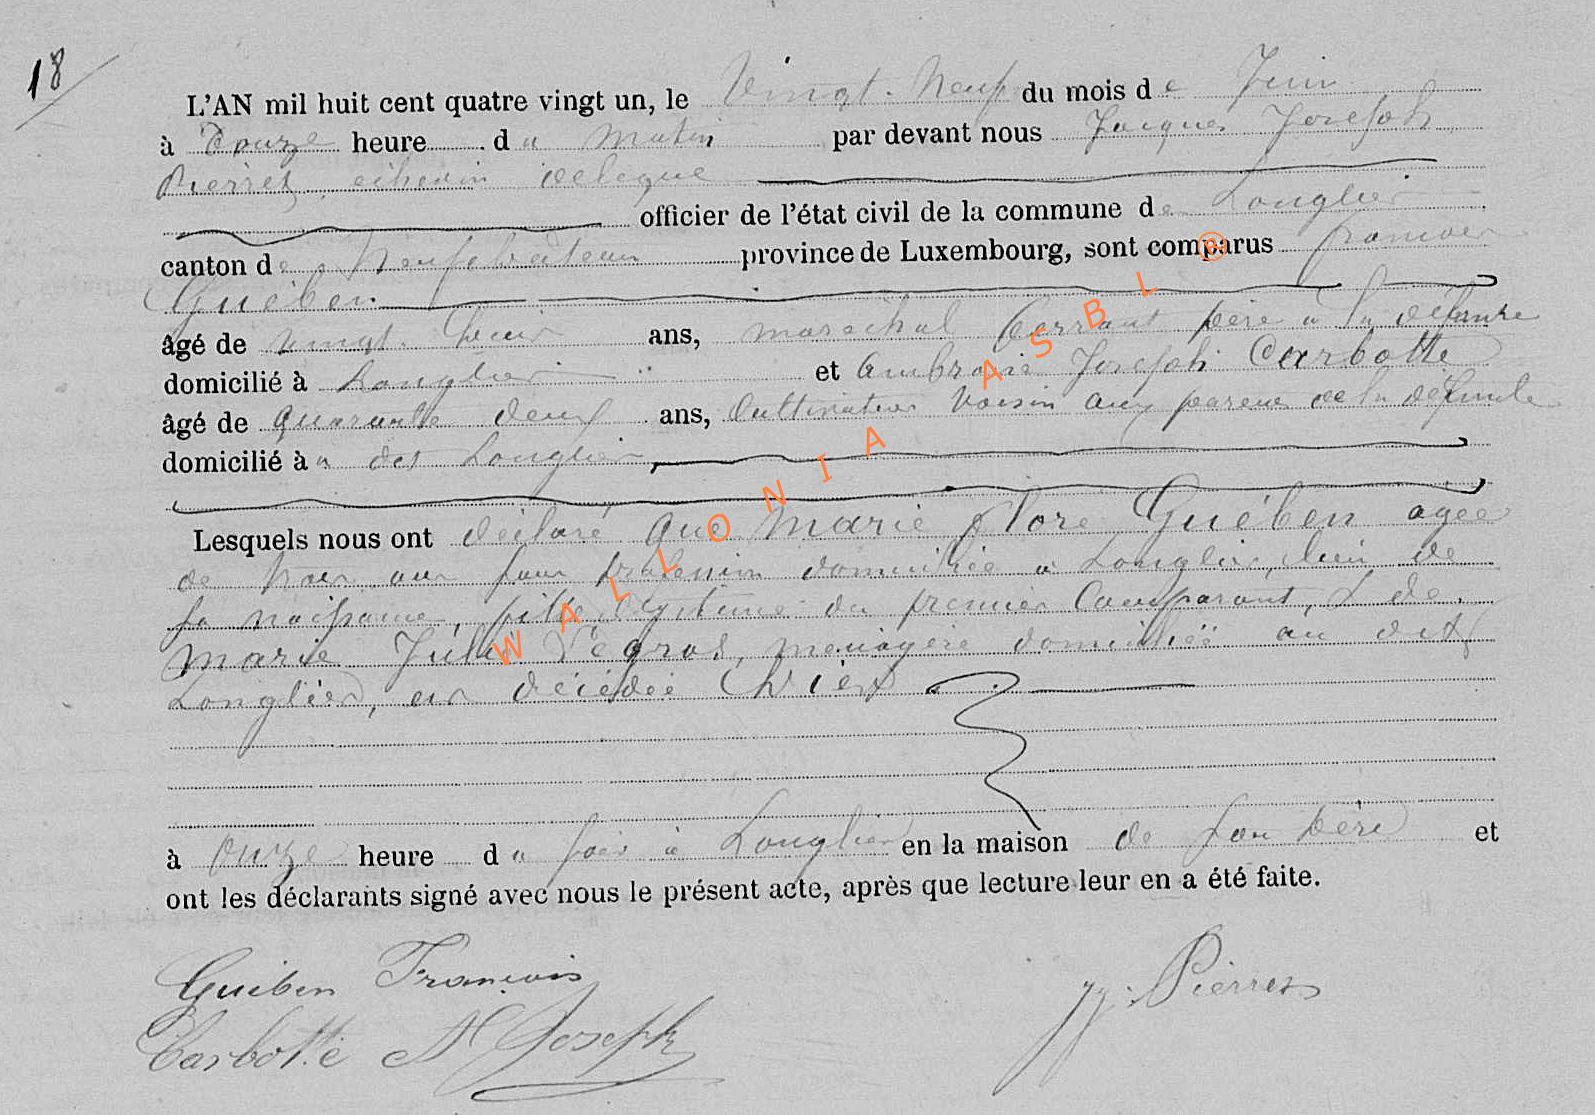 18
L'AN mil huit cent quatre vingt un, le Vingt-Neuf du mois de Juin
à onze heure du Matin par devant nous Jacques Joseph
Pierret échevin délégué
officier de l'état civil de la commune de Longlier
canton de Neufchateau province de Luxembourg, sont comparus francois
Guében
âgé de vingt huit ans, maréchal ferrant père à la défunte
domicilié à Longlier et Ambroise Joseph Carbotte
âgé de quarante deux ans, Cultivateur Voisin aux parens de la défunte
domicilié à a dit Longlier
Lesquels nous ont déclaré que Marie flore Guében agée
de trois ans sans profession domiciliée à Longlier, lieu de
sa naissance, fille légitime du premier Comparant, & de
Marie Julie Légros, menagère domiciliée au dit
Longlier, est décédée hier
à onze heure du soir à Longlier en la maison de son père et
ont les déclarants signé avec nous le présent acte, après que lecture leur en a été faite.
Guében Francois
JJ. Pierret
Carbotte A Joseph
WALLONIA ASBL ®